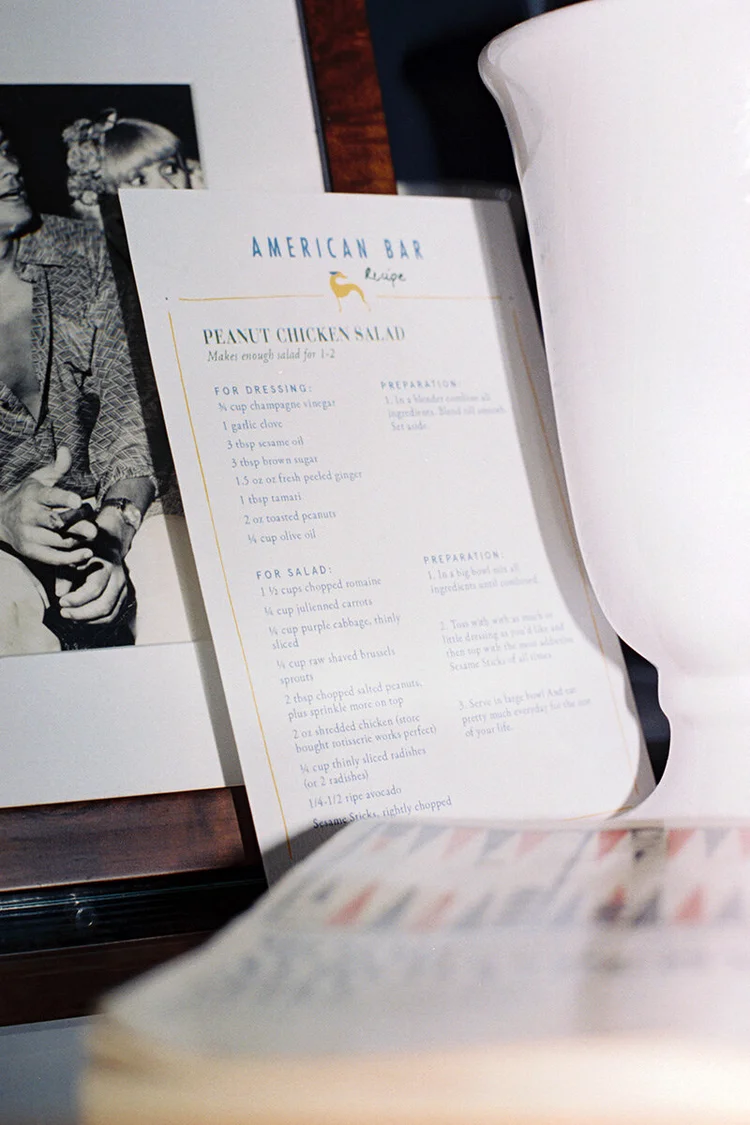 AMERICAN BAR
Recipe
PEANUT CHICKEN SALAD
Makes enough salad for 1-2
FOR DRESSING:
¾ cup champagne vinegar
1 garlic clove
3 tbsp sesame oil
3 tbsp brown sugar
1.5 oz or fresh peeled ginger
1 tbsp tamari
2 oz toasted peanuts
¼ cup olive oil
PREPARATION:
1. In a blender combine all
ingredients. Blend till smooth
Set aside.
FOR SALAD:
1 ½ cups chopped romaine
¼ cup julienned carrots
¼ cup purple cabbage, thinly
sliced
¼ cup raw shaved brussels
sprouts
2 tbsp chopped salted peanuts,
plus sprinkle more on top
2 oz shredded chicken (store
bought rotisserie works perfect)
¼ cup thinly sliced radishes
(or 2 radishes)
1/4-1/2 ripe avocado
Sesame Sticks, rightly chopped
PREPARATION:
1. In a big bowl mix all
ingredients until combined.
2. Toss with with as much or
little dressing as you'd like and
then top with the most addictive
Sesame Sticks of all times
3. Serve in large bowl And eat
pretty much everyday for the rest
of your life.